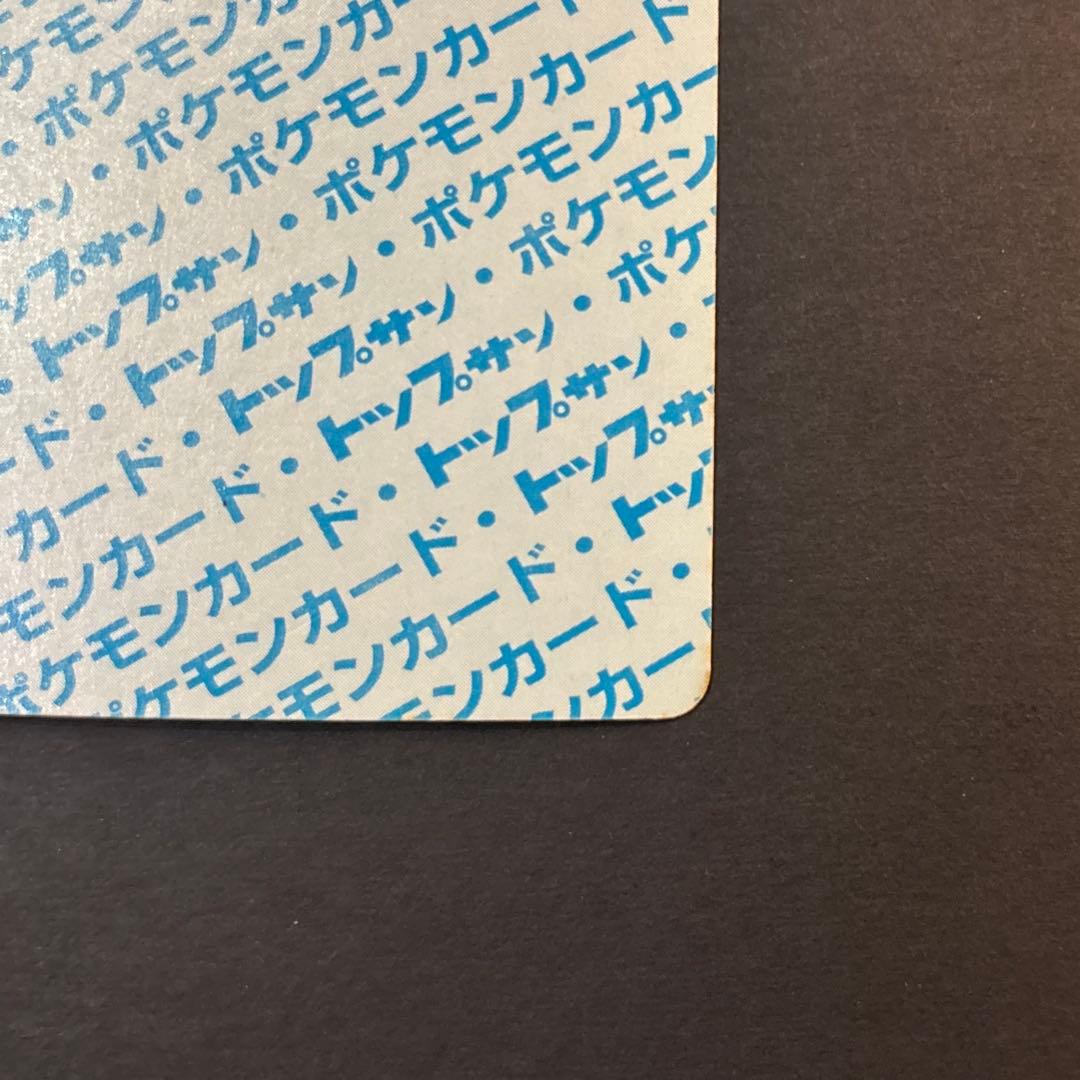 ケモン
・ポケモン
サン・ポケモンカ
ップサン・ポケモンカー
・トップサン・ポケモンカード
ード・トップサン・ポケモンカー
カード・トップサン・ポケモン
モンカード・トップサン・ポケ
ポケモンカード・トップサン・
ケモンカード・トップサ
モンカード・トッ
ンカード・
カー